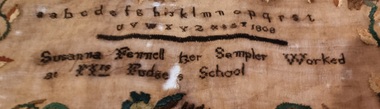 a a b c d e f g h i k l m n o p q r s t
U V W X Y Z 1808
Susanna Fennell her Sampler Worked
at Fudges School